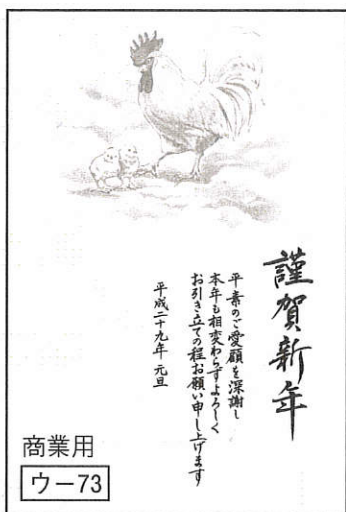 謹賀新年
平素のご愛顧を深謝し
本年も相変わらずよろしく
お引き立ての程お願い申し上げます
平成二十九年 元旦
商業用
ウー73